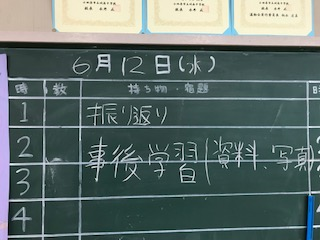 6月12日(水)
時 数 持ち物・宿題
1 振り返り
2 事後学習(資料、写真)
3
4